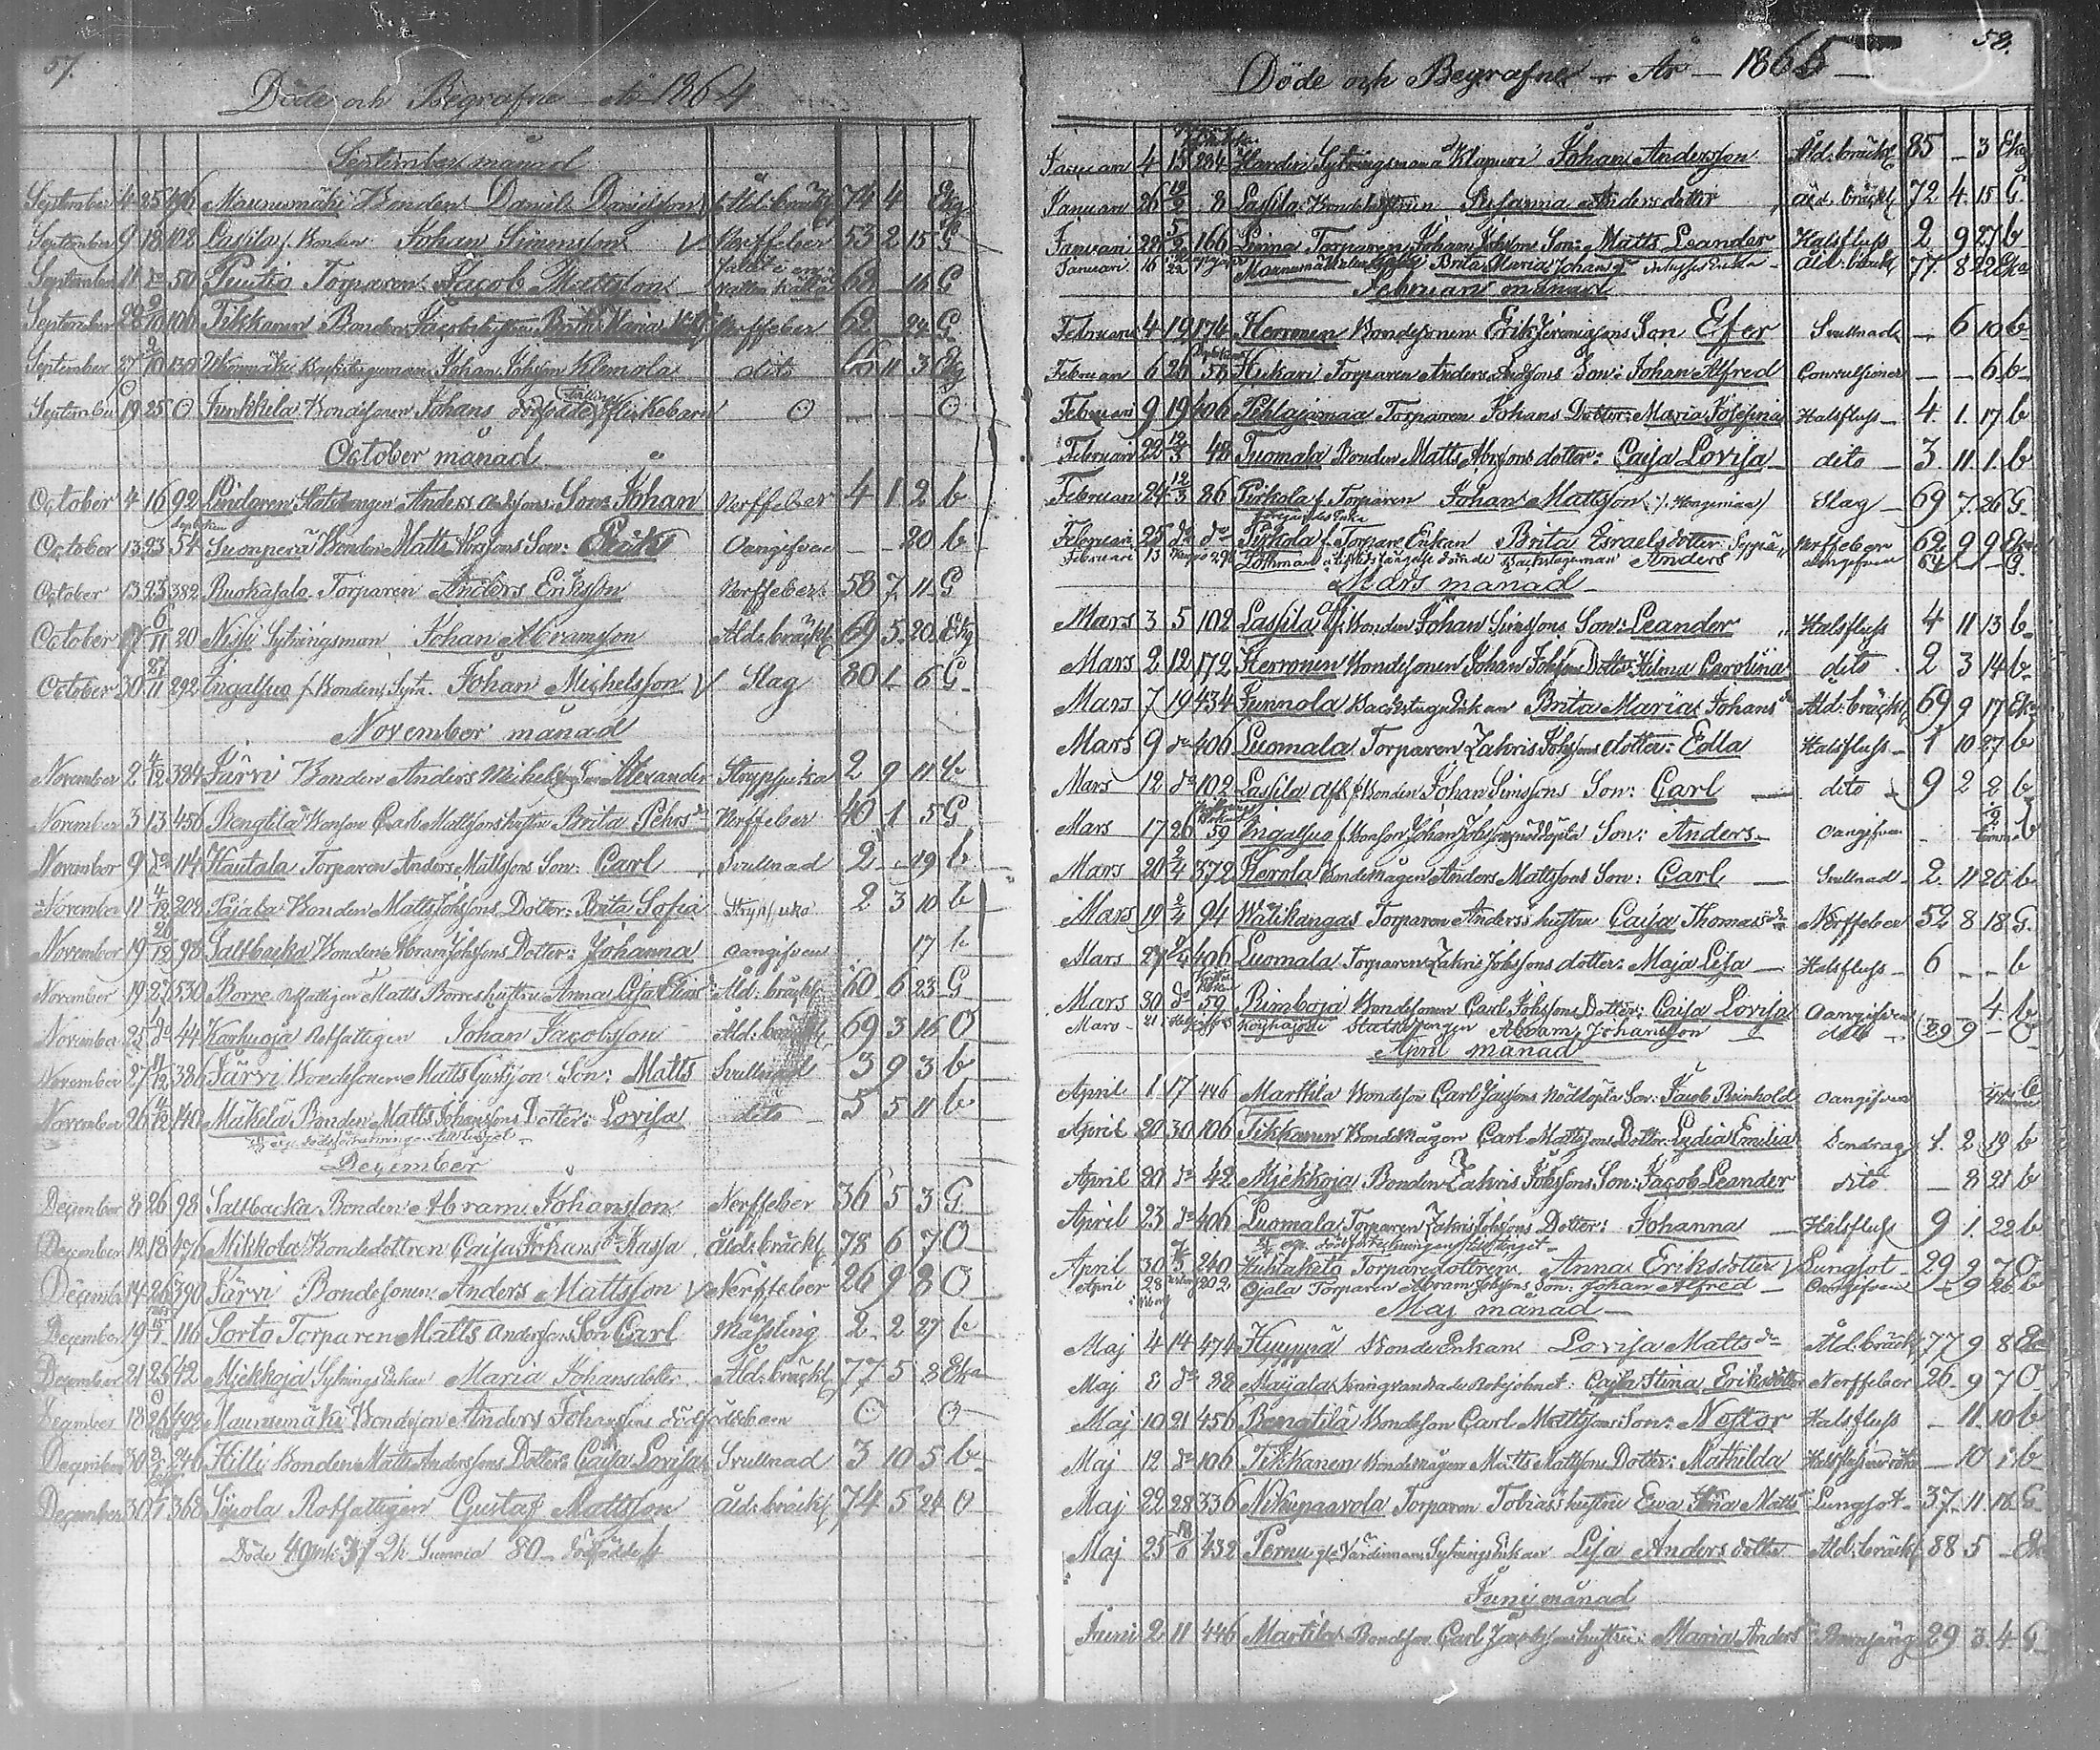 57.
Döde och Begrafne — År 1864
September månad
September 4 25 496 Maunumäki Bonden Daniel Danielsson Åld: bräckl 74 4 Ekg
September 9 18 102 Lassila f. Bonden Johan Simonsson V Nerffeber 53 2 15 G
September 11 do 50 Puutio Torparen Jacob Mattsson 68 – 16 G
September 28 9/10 106 Tikkanen Bonden Jacobs hustru Brita Maria Nerffeber 62 – 24 G
September 27 9/10 Johan Johsson Klemola dito 11 3 Ekg
September 19 25 O Junkkila Bondesonen Johans dödfödde flickebarn O O
October månad
October 4 16 92 Lindgren Anders Andssons Son: Johan Nerffeber 4 1 2 b
October 13 23 54 Suonperä Bonden Matts Abrssons Son: Erik Oangifven – – 20 b
October 13 23 382 Ruokasalo Torparen Anders Eriksson Nerffeber 58 7 11 G
October 17 6/11 20 Nissi Sytningsman Johan Abramsson Åld: bräckl 69 5 20 Ekg
October 30 27/11 292 Ingalsuo f. Bonden, Sytn. Johan Michelsson V Slag 80 1 6 G
November månad
November 2 4/12 384 Järvi Bonden Anders Michelssons Son Alexander Strypsjuka 2 9 11 b
November 3 13 456 Bengtilä Bonson Carl Mattssons hustru Brita Pehrs dr Nerffeber 40 1 5 G
November 9 do 114 Hautala Torparen Anders Mattssons Son: Carl Svullnad 2 – 19 b
November 11 4/12 208 Pajala Bonden Matts Johssons Dotter: Brita Sofia Strypsjuka 2 3 10 b
November 19 26/12 98 Saltbacka Bonden Abram Johssons Dotter: Johanna Oangifven 17 b
November 19 27 530 Borre Rotfattigen Matts Borres hustru Anna Lisa Elias dr Åld: bräckl 60 6 23 G
November 25 do 44 Karhuoja Rotfattigen Johan Jacobsson Åld: bräckl 69 3 16 O
November 27 11/12 386 Järvi Bondesonen Matts Gustsson Son: Matts Svullnad 3 9 3 b
November 26 4/12 140 Mäkelä Bonden Matts Johanssons Dotter: Lovisa dito 5 5 11 b
December
December 8 26 98 Saltbacka Bonden Abram Johansson Nerffeber 36 5 3 G
December 12 18 476 Mikkola Bondedottren Caisa Johans dr Kassa Åld: bräckl 78 6 7 O
December 14 26 390 Järvi Bondesonen Anders Mattsson V Nerffeber 26 9 8 O
December 19 15/1 116 Sorto Torparen Matts Anderssons Son Carl Mässling 2 2 27 b
December 21 26 42 Miekkoja Sytnings Enkan Maria Johansdotter Åld: bräckl 77 5 8 Eka
December 18 26 492 Maunumäki Bondeson Anders Johanssons dödfödde barn O O
December 30 246 Hilli Bonden Matts Anderssons Dotter Caisa Lovisa Svullnad 3 10 5 b
December 30 368 Sipola Rotfattigen Gustaf Mattsson Åld: bräckl 74 5 24 O
Döde 49 mk 31 Summa 80 – dödfödde
58.
Döde och Begrafne – År – 1865 –
Januari 4 15 284 Johan Andersson Åld: bräckl 85 – 3 Ekg
Januari 26 12/2 8 Lassila Bondehustrun Susanna Andersdotter Åld. bräckl 72 4 15 G
Januari 28 5/2 166 Linna Torparen Johan Johsson Son: Matts Leander Halsfluss 2 9 27 b
Januari 16 Brita Maria Johans dr Åld: bräckl 77 8 22 Eka
Februari månad
Februari 4 19 174 Herronen Bondesonen Erik Jeremiassons Son Efer Svullnad – 6 10 b
Februari 6 26 56 Kukari Torparen Anders Andssons Son: Johan Alfred Convulsioner – – 6 b
Februari 9 19 406 Pehlajamaa Torparen Johans Dotter: Maria Josefina Halsfluss 4 1 17 b
Februari 22 12/3 48 Tuomala Bonden Matts Abrssons dotter: Caisa Lovisa dito 3 11 1 b
Februari 24 12/3 86 Pirkola f. Torparen Johan Mattsson Slag 69 7 26 G
Februari 25 do do Pirkola f. Torpare Enkan Brita Esraelsdotter Nerffeber 62 9 9 Eka
Februari 13 Anders Oangifven 64 – G
Mars månad
Mars 3 5 102 Lassila afl. Bonden Johan Simssons Son: Leander Halsfluss 4 11 13 b
Mars 2 12 172 Herronen Bondesonen Johan Johssons Dotter Hilma Carolina dito 2 3 14 b
Mars 7 19 434 Junnola Backstugu Enkan Brita Maria Johans dr Åld: bräckl 69 9 17 Eka
Mars 9 do 406 Luomala Torparen Zakris Johssons dotter: Edla Halsfluss 1 10 27 b
Mars 12 do 102 Lassila afl. f. Bonden Johan Simssons Son: Carl dito 9 2 2 b
Mars 17 26 59 Ingalsuo f. Bonson Johan Johssons nöddöpta Son: Anders Oangifven b
Mars 20 2/4 372 Herola Bondemågen Anders Mattssons Son: Carl Svullnad 2 11 20 b
Mars 19 2/4 94 Wälikangas Torparen Anders's hustru Caisa Thomas dr Nerffeber 52 8 18 G
Mars 27 406 Luomala Torparen Zakris Johssons dotter: Maja Lisa Halsfluss 6 – – b
Mars 30 do 59 Rimboja Bondesonen Carl Johssons Dotter: Caisa Lovisa Oangifven – – 4 b
Mars 21 Statdrengen Abram Johansson dito 29 9 – O
April månad
April 1 17 446 Marttila Bondeson Carl Jacssons Nöddöpta Son: Jacob Reinhold Oangifven
April 20 30 106 Tikkanen Bondemågen Carl Mattssons Dotter: Lydia Emilia Bendrag 1 2 19 b
April 20 do 42 Miekkoja Bonden Zakris Johssons Son: Jacob Leander dito – 8 21 b
April 23 do 406 Luomala Torparen Zakris Johssons Dotter: Johanna Halsfluss 9 1 22 b
April 30 7/5 240 Torparedottren Anna Eriksdotter V Lungsot 29 9 7 O
April 28 202 Ojala Torparen Abram Johssons Son: Johan Alfred Oangifven – 9 26 b
Maj månad
Maj 4 14 474 Huuppä Bonde Enkan Lovisa Matts dr Åld: bräckl 77 9 8 Eka
Maj 8 do 88 Maijala Kringvandrade Rotehjonet: Cajsa Stina Eriksdotter Nerffeber 26 9 7 O
Maj 10 21 456 Bengtilä Bondeson Carl Mattssons Son: Nestor Halsfluss – 11 10 b
Maj 12 do 106 Tikkanen Bondemågen Matts Mattssons Dotter: Mathilda – 10 1 b
Maj 22 28 336 Niskapaavola Torparen Tobias's hustru Ewa Stina Matts dr Lungsot 37 11 12 G
Maj 25 18/6 432 Pernu Sytnings Enkan Lisa Andersdotter Åld: bräckl 88 5 – Eka
Juni månad
Juni 2 11 446 Martila Bondeson Carl Jacobssons hustru: Maria Anders dr Barnsäng 29 3 4 G